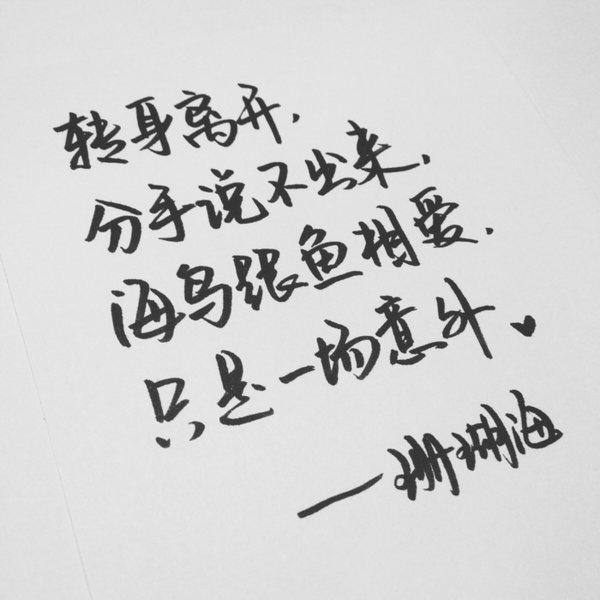 转身离开,
分手说不出来,
海鸟跟鱼相爱.
只是一场意外♥
—珊瑚海